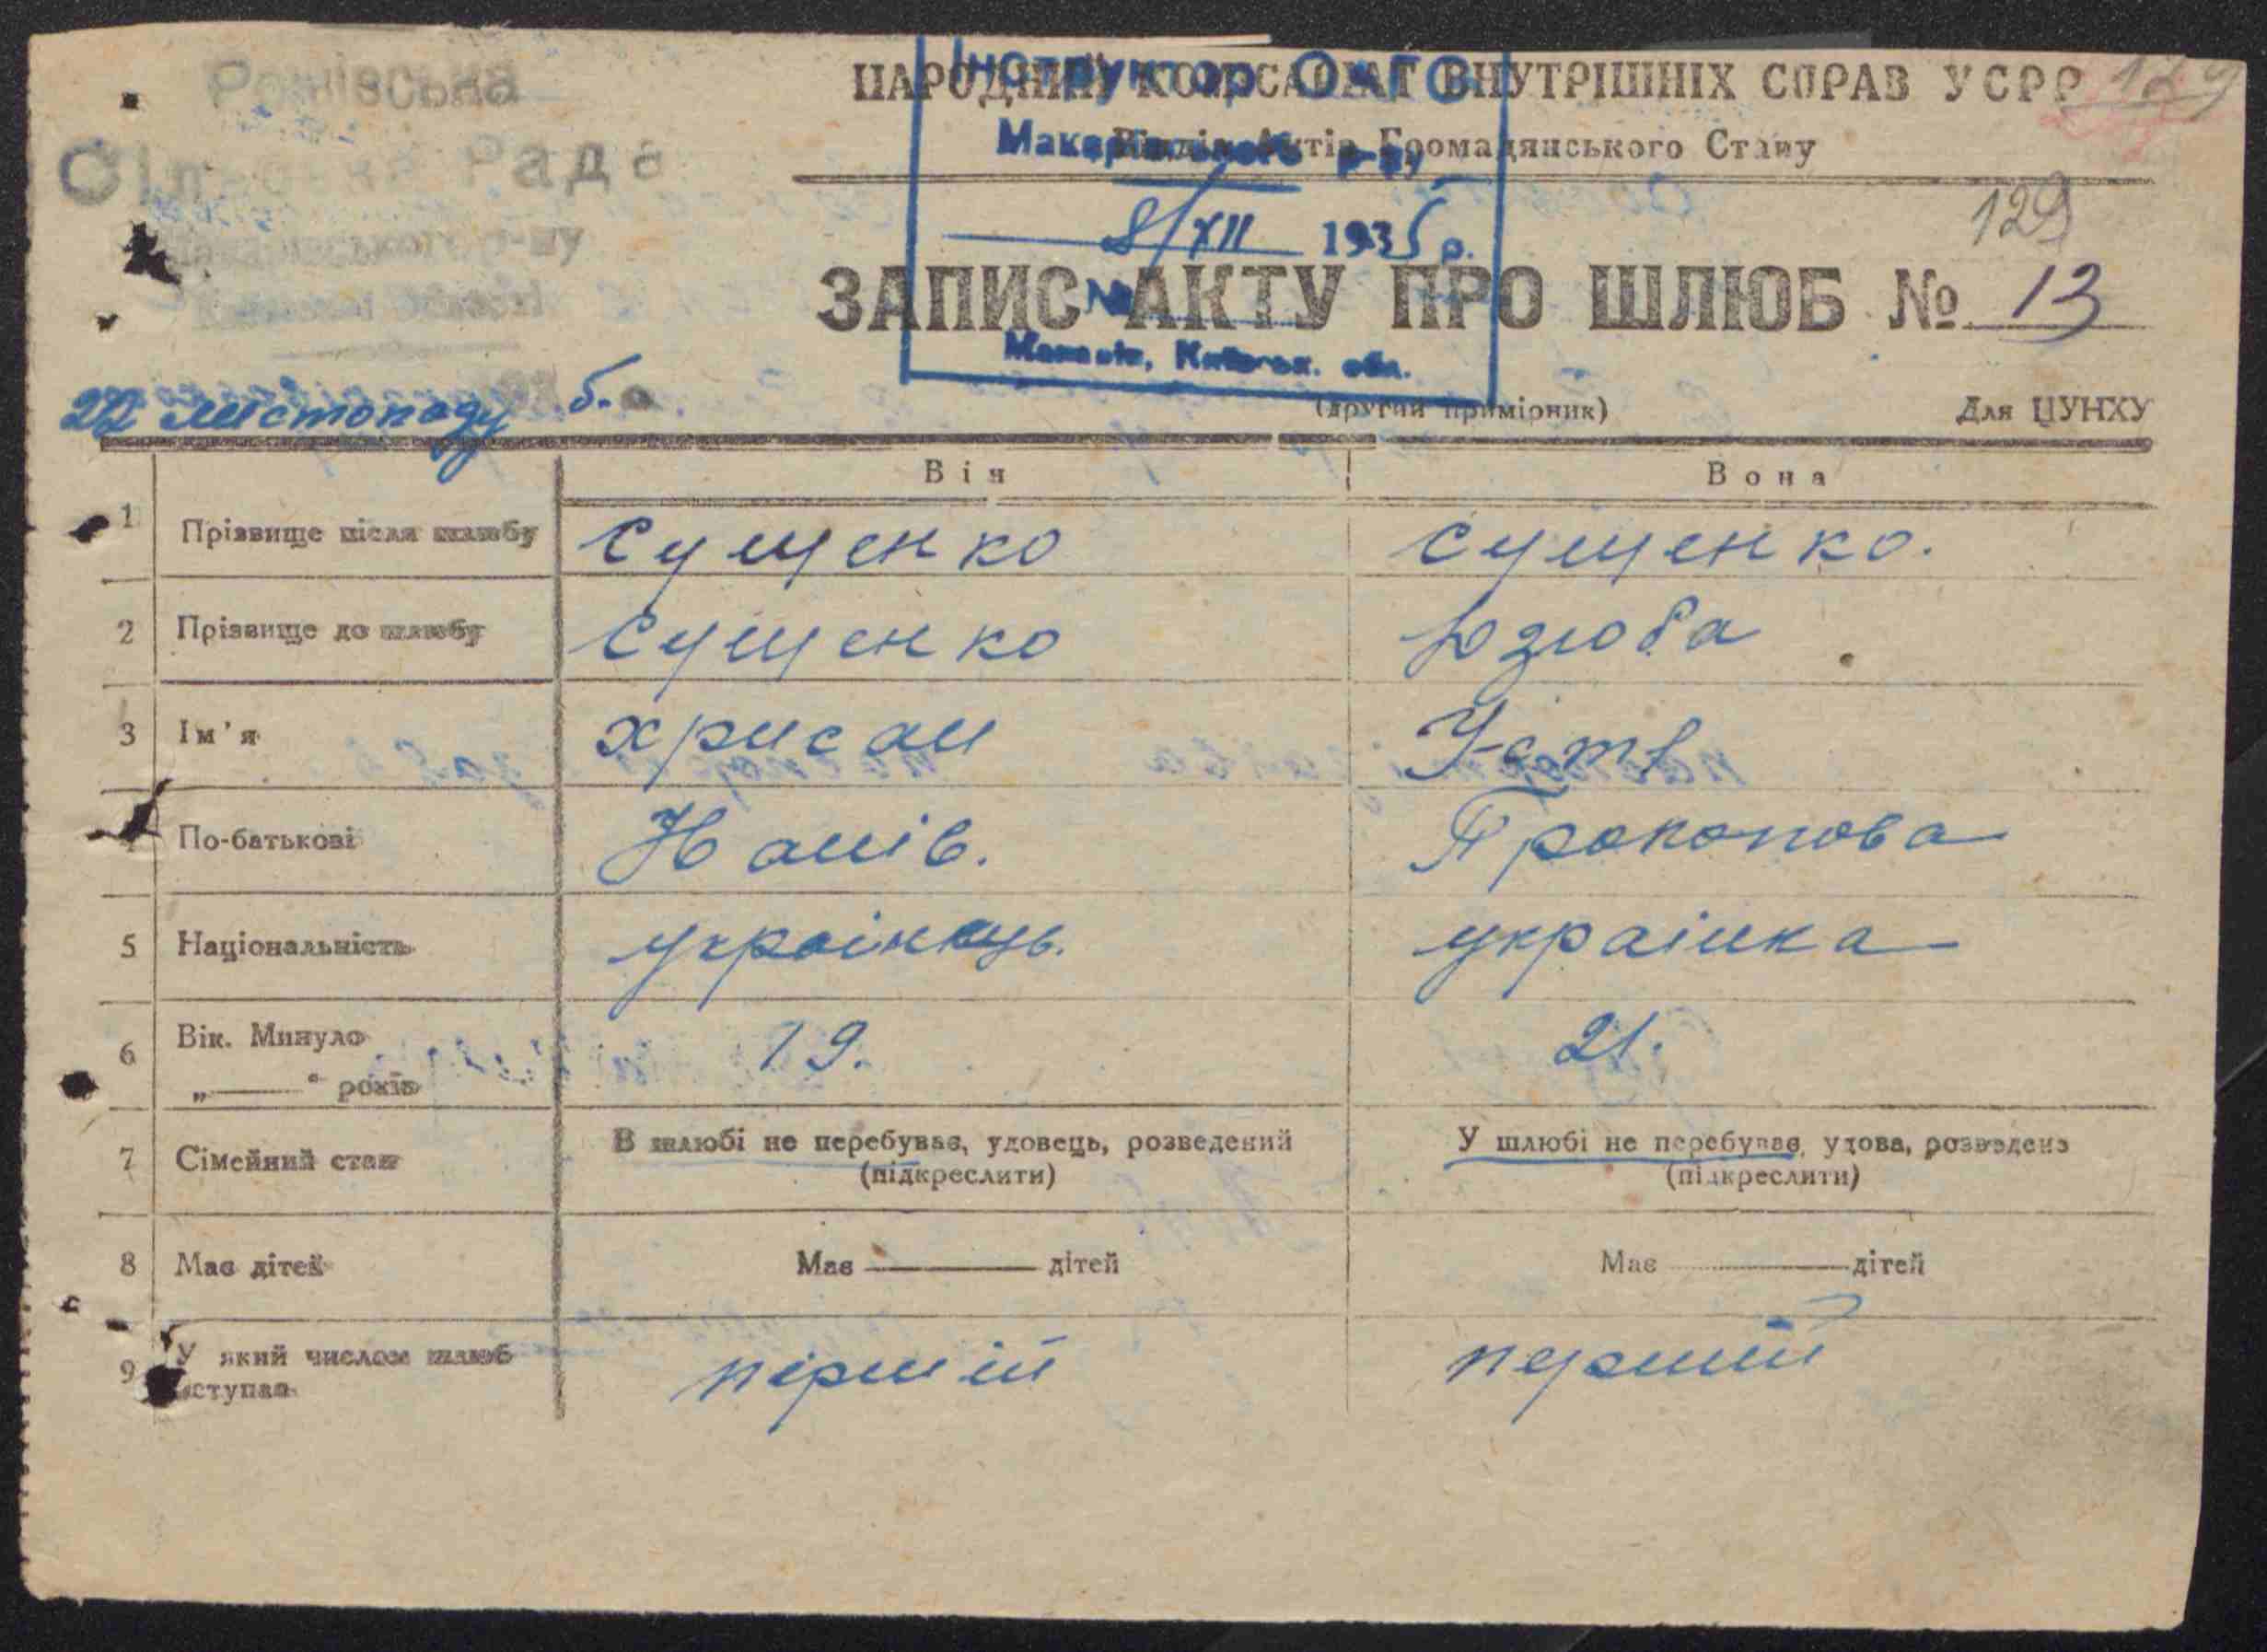 Сільська Рада
Макарівського р-ну
Київської області
22 листопаду 5.
129
НАРОДНИЙ КОМІСАРІАТ ВНУТРІШНІХ СПРАВ УСРР
Відділ Актів Громадянського Стану
Інструктор ОАГС
Макарівського р-ну
8/XII 1935 р.
№
Макарів, Київськ. обл.
129
ЗАПИС АКТУ ПРО ШЛЮБ № 13
(другий примірник) Для ЦУНХУ
Він Вона
1 Прізвище після шлюбу Сущенко Сущенко.
2 Прізвище до шлюбу Сущенко Дзюба
3 Ім'я хрисан Устя
По-батькові Прокопова
5 Національність українець. українка
6 Вік. Минуло 19. 21.
„ “ років
7 Сімейний стан В шлюбі не перебуває, удовець, розведений У шлюбі не перебуває, удова, розведена
(підкреслити) (підкреслити)
8 Має дітей Має дітей Має дітей
9 У який числом шлюб перший перший
вступає